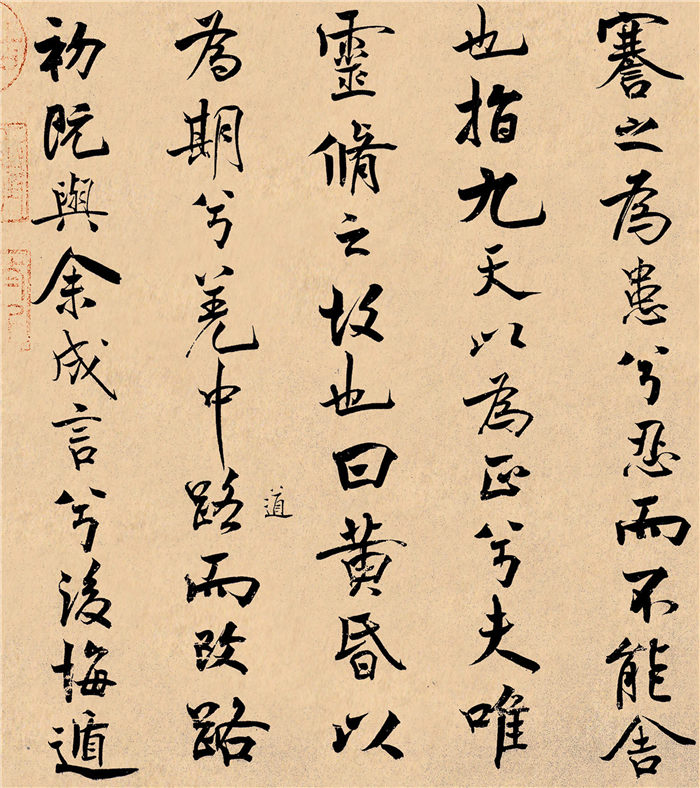 謇之為患兮忍而不能舍
也指九天以為正兮夫唯
靈脩之故也曰黃昏以
道
為期兮羌中路而改路
初既與余成言兮後悔遁